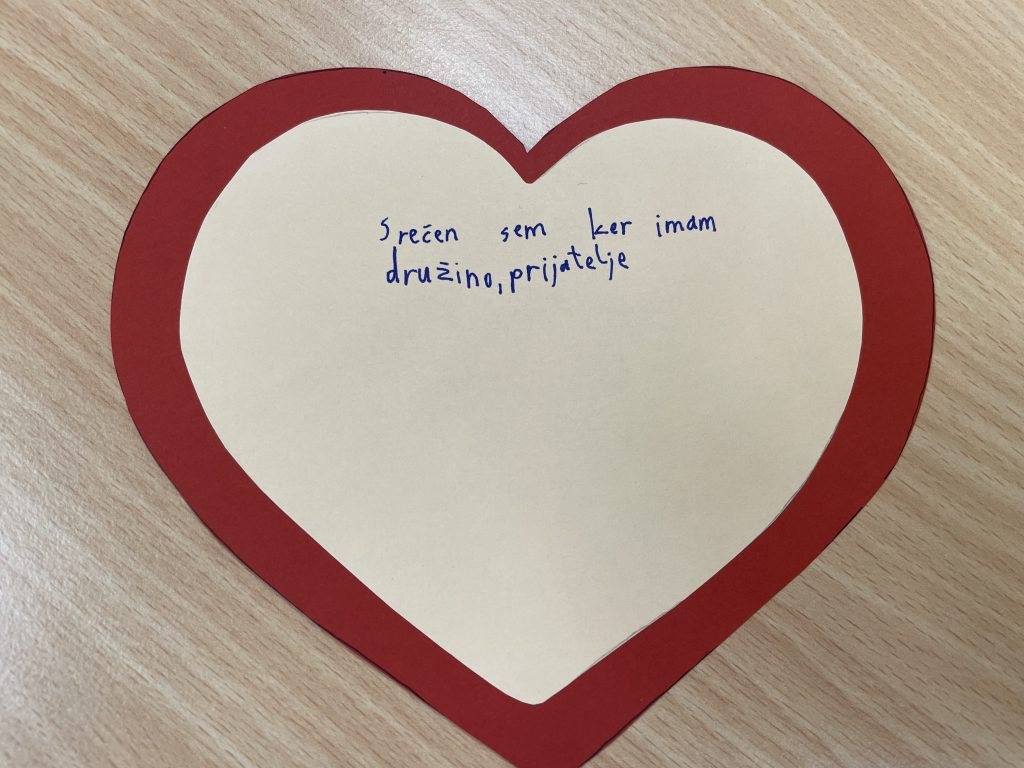 srečen sem ker imam
družino, prijatelje